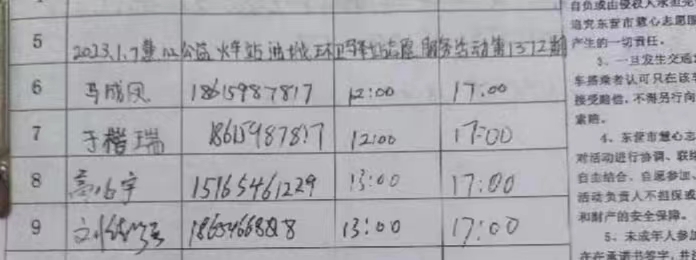 5 2023.1.7慧心公益火车站油城环卫驿站志愿服务活动第1372期
6 马成凤 18615987817 12:00 17:00
7 于楷瑞 18615987817 12:00 17:00
8 宇 15165461229 13:00 17:00
9 刘 13:00 17:00
自负或由侵权人承担完
追究东营市慧心志愿
产生的一切责任。
3、一旦发生交通
车搭乘者认可只在该车
接受赔偿,不得另行向
索赔。
4、东营市慧心志
对活动进行协调、联络
自由结合、自愿参加、
活动负责人不担保或
和财产的安全保障。
5、未成年人参加
存在承诺书签字,并